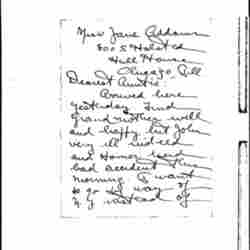 Miss Jane Addams
800 S Halsted
Hull House
Chicago, Ill
Dearest Auntie:
Arrived here
yesterday find
grandmother well
and happy but John
very ill indeed
and Homer
bad accident this
morning. I want
to go by way of
N.Y instead of